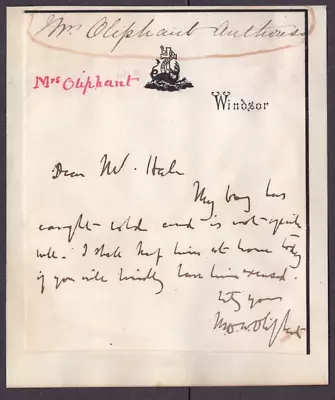 Mrs Oliphant Authoress
Mrs Oliphant
Windsor
Dear Mr. Hale
My boy has
caught cold and is not quite
well. I shall keep him at home today
if you will kindly have him excused.
truly yours
M O W Oliphant